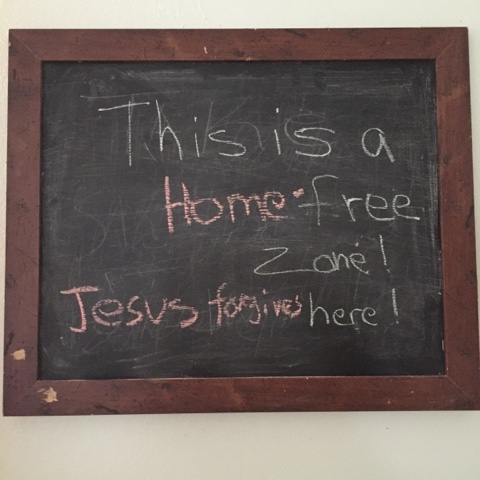 This is a
Home-free
zone!
Jesus forgives here!